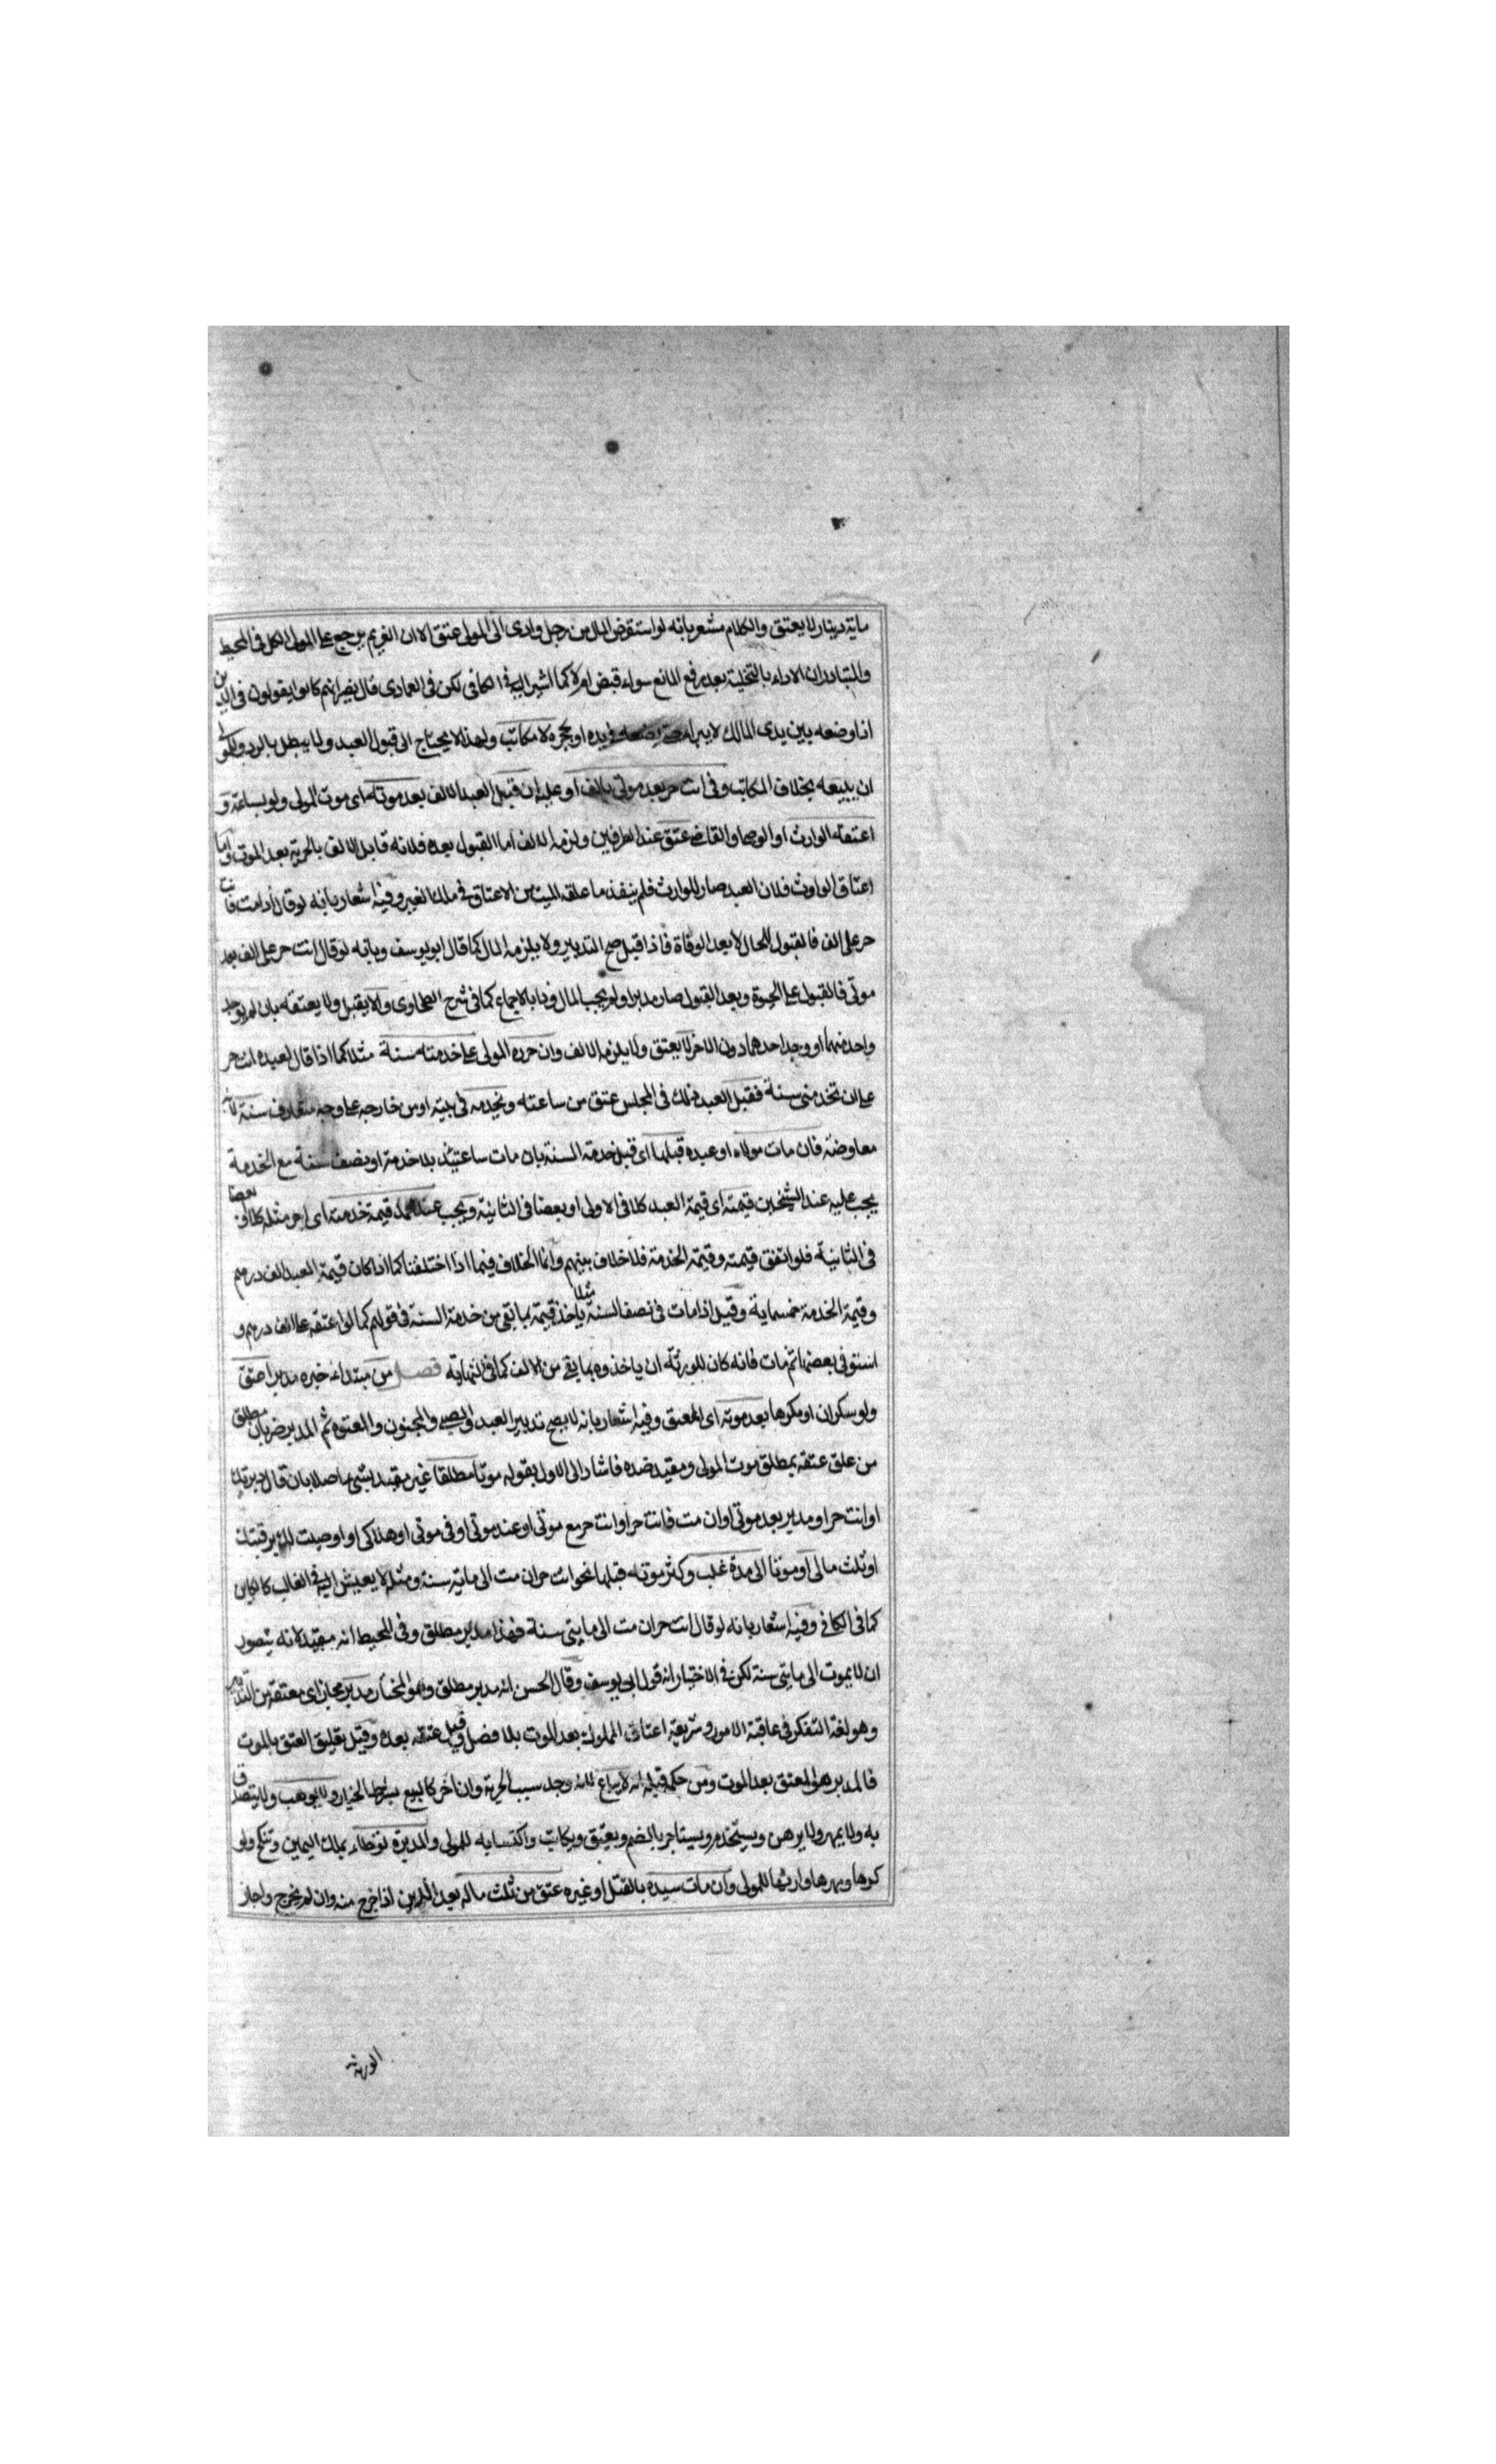 ماية دينار لا يعتق والكلام مشعر بانه لو استقرض المال من رجل وادى الى المولى عتق الا ان الغريم يرجع على المولى الكل فى المحيط
والمتبادر ان الاداء بالتخلية بعد رفع المانع سواء قبض ام لا كما اشير اليه فى الكافى لكن فى العمادى قال بعضهم كانوا يقولون فى الدين
اذا وضعه بين يدى المالك لا يبرأ حتى يضعه فى يده او حجره لا مكاتب ولهذا لا يحتاج الى قبول العبد ولا يبطل بالرد وللمولى
ان يبيعه بخلاف المكاتب وفى انت حر بعد موتى بالف او على ان قبل العبد الالف بعد موته اى موت المولى ولو بساعة و
اعتقه الوارث او الوصى او القاضى عتق عند الطرفين ولزمه الالف اما القبول بعده فلانه قابل الالف بالحرية بعد الموت واما
اعتاق الوارث فلان العبد صار للوارث فلم ينفذ ما علقه الميت من الاعتاق فى ملك الغير وفيه اشعار بانه لو قال اذا مت فانت
حر على الف فالقبول للحال لا بعد الوفاة فاذا قبل صح التدبير ولا يلزمه المال كما قال ابو يوسف وبانه لو قال انت حر على الف بعد
موتى فالقبول على الحيوة وبعد القبول صار مدبرا ولم يجب المال وذا بالاجماع كما فى شرح الطحاوى والا يقبل ولا يعتقه بان لم يوجد
واحد منهما او وجد احدهما دون الاخر لا يعتق ولا يلزمه الالف وان حرره المولى على خدمته سنة مثلا كما اذا قال لعبده انت حر
على ان تخدمنى سنة فقبل العبد ذلك فى المجلس عتق من ساعته ويخدمه فى بيته او من خارجه على وجه متعارف سنة لانه
معاوضة فان مات مولاه او عبده قبلها اى قبل خدمة السنة بان مات ساعتئذ بلا خدمة او بنصف سنة مع الخدمة
يجب عليه عند الشيخين قيمته اى قيمة العبد كلا فى الاولى او بعضا فى الثانية ويجب عند محمد قيمة خدمته اى اجر مثله كلا او بعضا
فى الثانية فلو اتفق قيمته وقيمة الخدمة فلا خلاف بينهم وانما الخلاف فيما اذا اختلفتا كما اذا كان قيمة العبد الف درهم
وقيمة الخدمة خمسماية وقيل اذا مات فى نصف السنة مثلا ياخذ قيمة ما بقى من خدمة السنة فى قولهم كما لو اعتقه على الف درهم و
استوفى بعضها ثم مات فانه كان للورثة ان ياخذوه بما بقى من الالف كما فى النهاية فصل من مبتداء خبره مدبر اعتق
ولو سكران او مكرها بعد موته اى المعتق وفيه اشعار بانه لا يصح تدبير العبد والصبى والمجنون والمعتوه ثم المدبر ضربان مطلق
من علق عتقه بمطلق موت المولى ومقيد ضده فاشار الى الاول بقوله موتا مطلقا غير مقيد بشئ ما اصلا بان قال دبرتك
او انت حر او مدبر بعد موتى او ان مت فانت حر او انت حر مع موتى او عند موتى او فى موتى او هذا كى او اوصيت لك برقبتك
او ثلث مالى او موتا الى مدة غلب وكثر موته قبلها نحو انت حر ان مت الى ماية سنة ومثله لا يعيش اليه فى الغالب كالكاين
كما فى الكافى وفيه اشعار بانه لو قال انت حر ان مت الى مايتى سنة فهذا مدبر مطلق وفى المحيط انه مقيد لانه يتصور
ان لا يموت الى مايتى سنة لكن فى الاختيار انه قول ابى يوسف وقال الحسن انه مدبر مطلق وهو المختار مدبر مجاز اى معتقه من التدبير
وهو لغة التفكر فى عاقبة الامور وشريعة اعتاق المملوك بعد الموت بلا فصل وقيل عتقه بعده وقيل تعليق العتق بالموت
فالمدبر هو المعتق بعد الموت ومن حكمه قبله انه لا يباع لانه وجد سبب الحرية وان اخر كالبيع بشرط الخيار ولا يوهب ولا يتصدق
به ولا يمهر ولا يرهن ويستخدم ويستاجر بالضم ويعتق ويكاتب واكتسابه للمولى والمدبرة توطاء بملك اليمين وتنكح ولو
كرها ومهرها وارشها للمولى وان مات سيده بالقتل او غيره عتق من ثلث ماله بعد الدين اذا خرج منه وان لم يخرج واجاز
الورثة